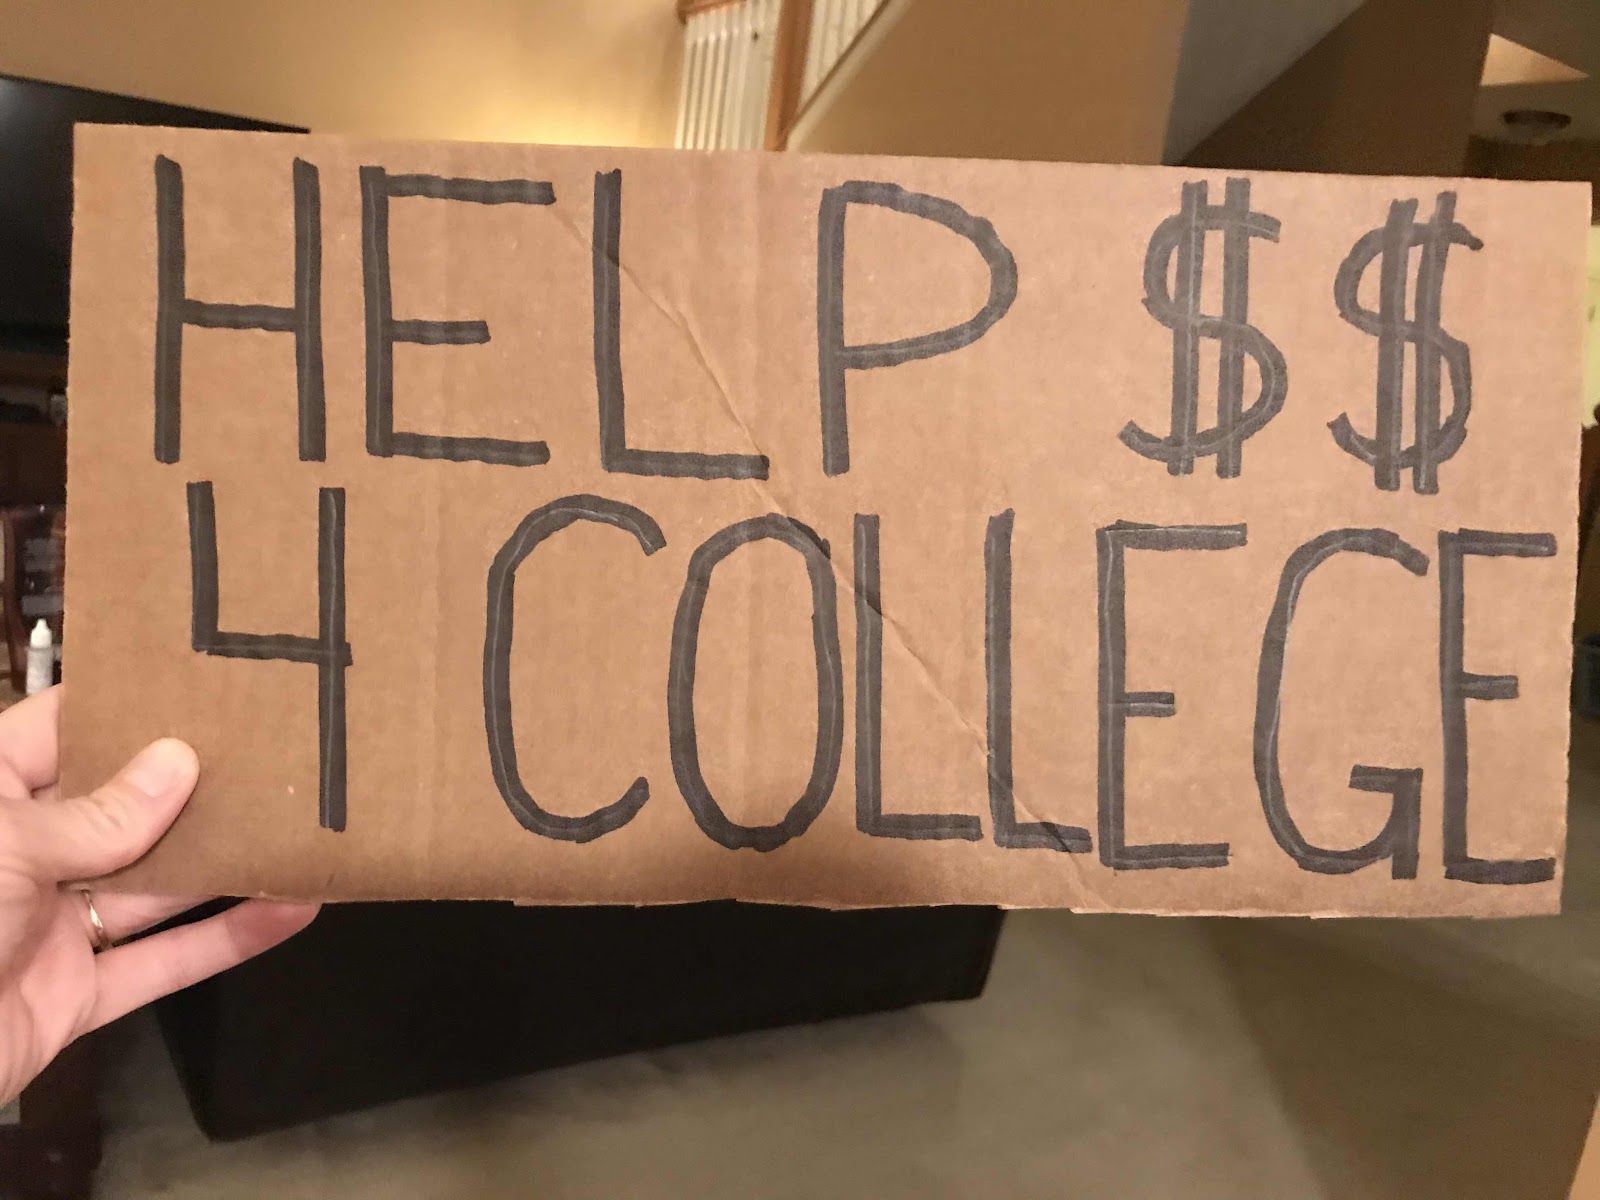 HELP $$
4 COLLEGE